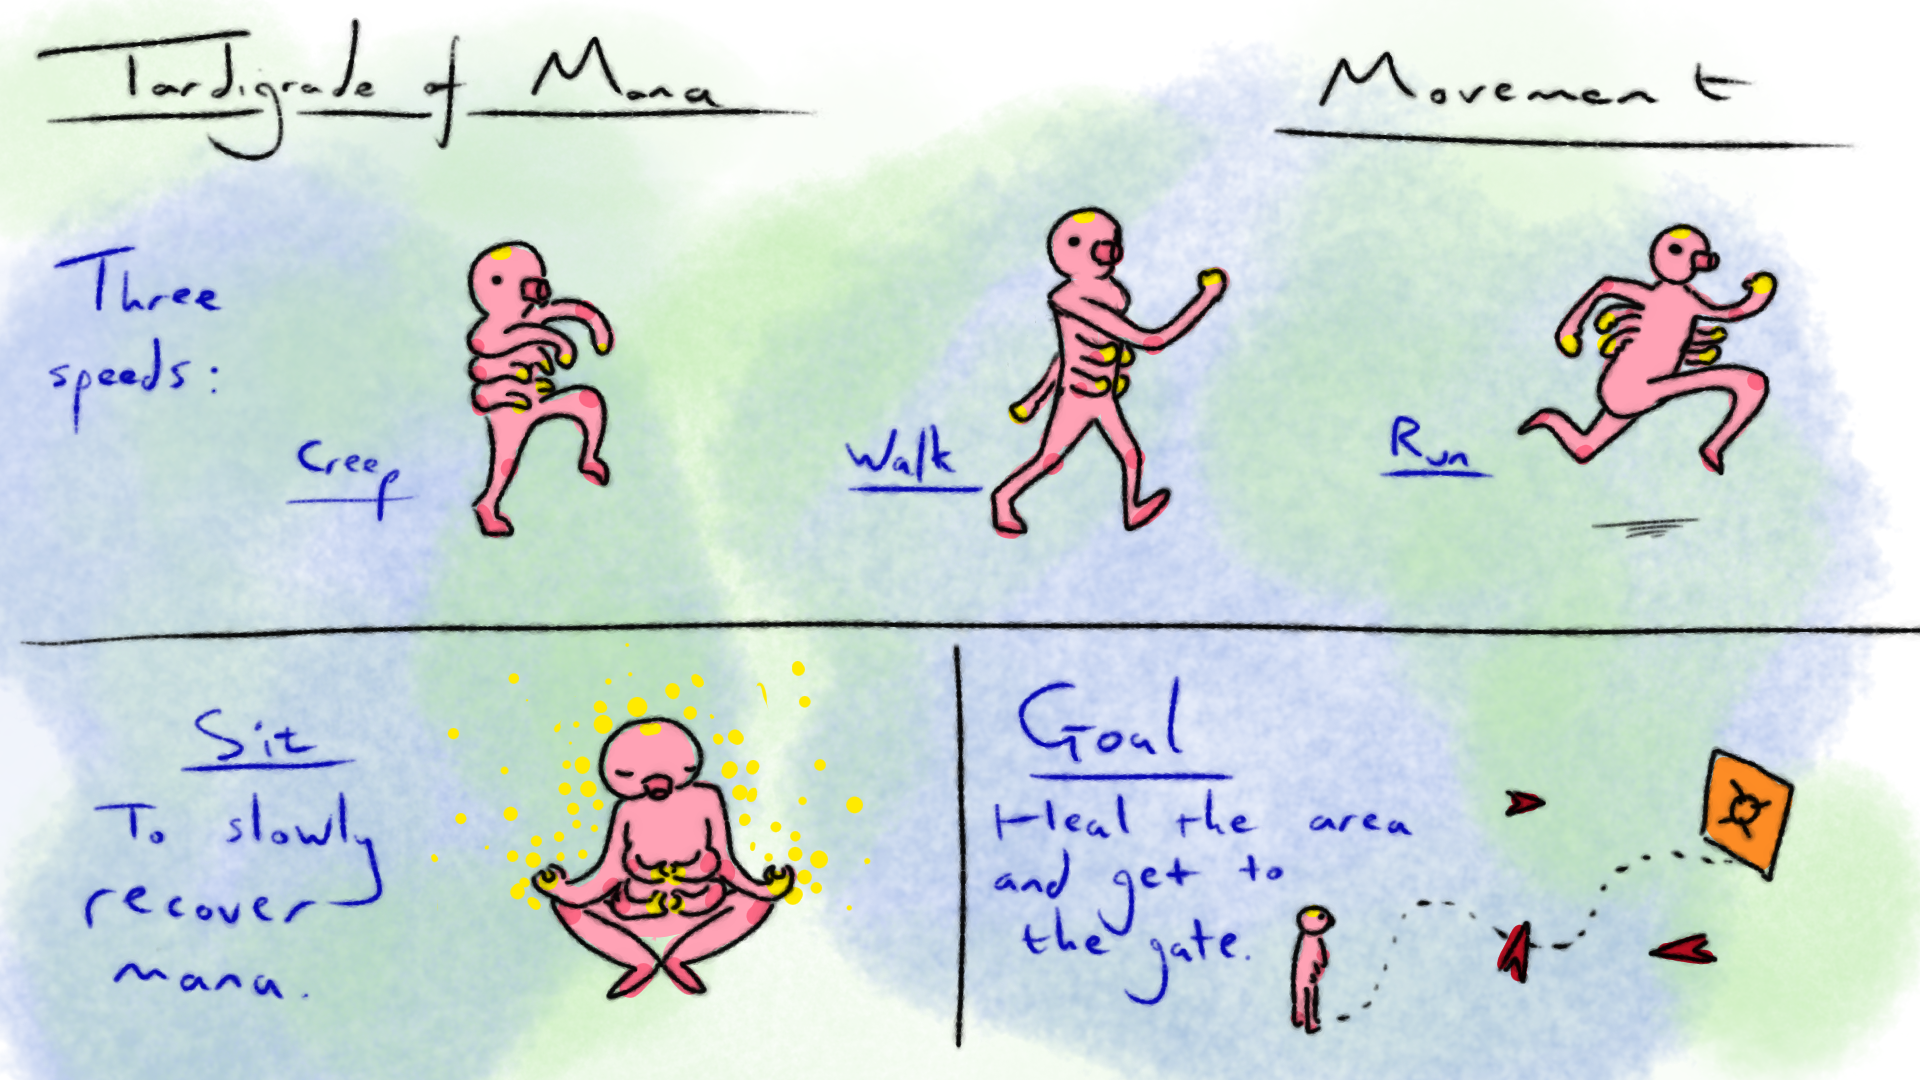 Tardigrade of Mana
Movement
Three
speeds:
Creep
Walk
Run
Sit
To slowly
recover
mana.
Goal
Heal the area
and get to
the gate.